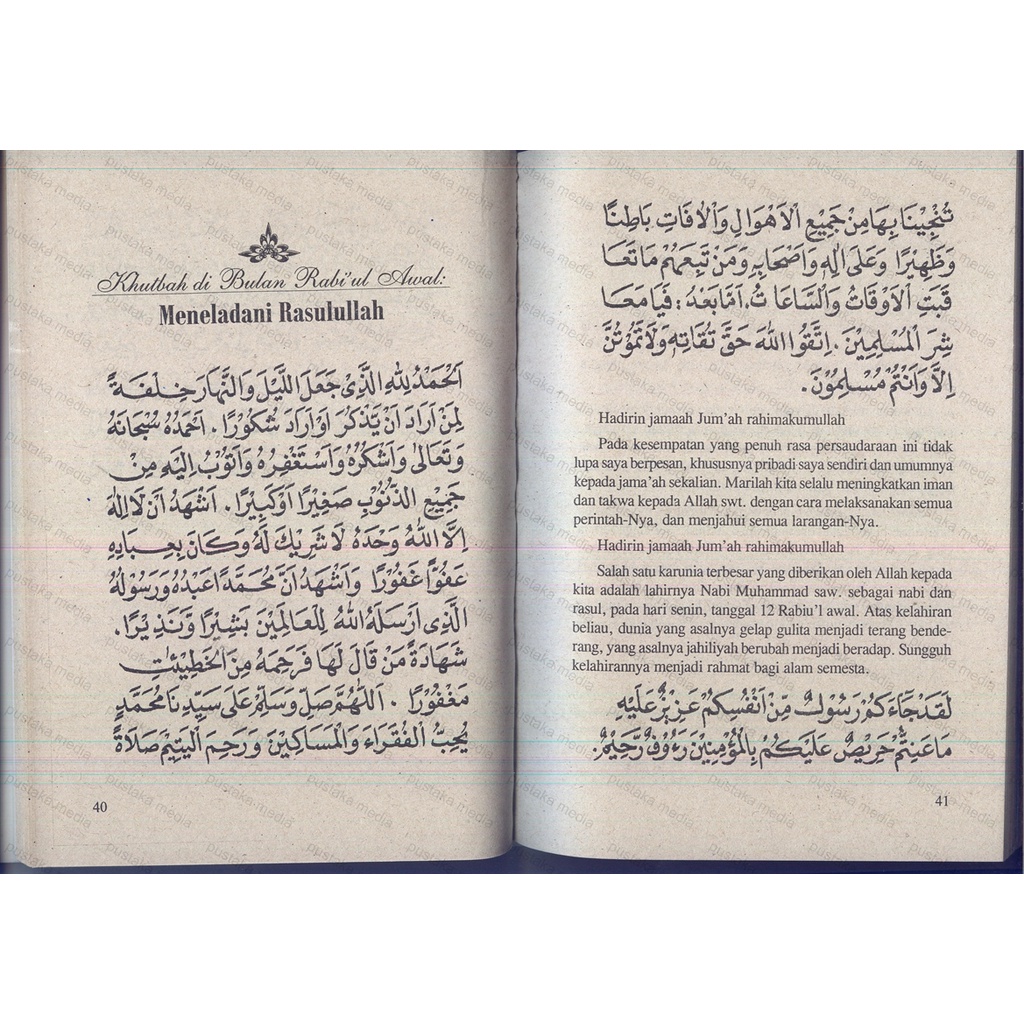 Khutbah di Bulan Rabi'ul Awal:
Meneladani Rasulullah
اَلْحَمْدُ لِلّٰهِ الَّذِيْ جَعَلَ اللَّيْلَ وَالنَّهَارَ خِلْفَةً
لِمَنْ اَرَادَ اَنْ يَذَّكَّرَ اَوْ اَرَادَ شُكُوْرًا . اَحْمَدُهُ سُبْحَانَهُ
وَتَعَالٰى وَاَشْكُرُهُ وَاَسْتَغْفِرُهُ وَاَتُوْبُ اِلَيْهِ مِنْ
جَمِيْعِ الذُّنُوْبِ صَغِيْرًا اَوْكَبِيْرًا . اَشْهَدُ اَنْ لَااِلٰهَ
اِلَّا اللّٰهُ وَحْدَهُ لَا شَرِيْكَ لَهُ وَكَانَ بِعِبَادِهِ
عَفُوًّا غَفُوْرًا وَاَشْهَدُ اَنَّ مُحَمَّدًا عَبْدُهُ وَرَسُوْلُهُ
الَّذِى اَرْسَلَهُ اللّٰهُ لِلْعَالَمِيْنَ بَشِيْرًا وَّنَذِيْرًا .
شَهَادَةً مَنْ قَالَ لَهَا فَرَحِمَهُ مِنَ الْخَطِيْئٰتِ
مَغْفُوْرًا . اَللّٰهُمَّ صَلِّ وَسَلِّمْ عَلٰى سَيِّدِنَا مُحَمَّدٍ
يُحِبُّ الْفُقَرَاءَ وَالْمَسَاكِيْنَ وَرَحِمَ الْيَتِيْمَ صَلَاةً
40
تُنْجِيْنَا بِهَا مِنْ جَمِيْعِ الْاَهْوَالِ وَالْاٰفَاتِ بَاطِنًا
وَظَهِيْرًا وَعَلٰى اٰلِهِ وَاَصْحَابِهِ وَمَنْ تَبِعَهُمْ مَاتَعَا
قَبَتِ الْاَوْقَاتُ وَالسَّاعَاتُ . اَمَّا بَعْدُ : فَيَا مَعَا
شِرَ الْمُسْلِمِيْنَ . اِتَّقُوا اللّٰهَ حَقَّ تُقَاتِهِ وَلَا تَمُوْتُنَّ
اِلَّا وَاَنْتُمْ مُسْلِمُوْنَ .
Hadirin jamaah Jum'ah rahimakumullah
Pada kesempatan yang penuh rasa persaudaraan ini tidak
lupa saya berpesan, khususnya pribadi saya sendiri dan umumnya
kepada jama'ah sekalian. Marilah kita selalu meningkatkan iman
dan takwa kepada Allah swt. dengan cara melaksanakan semua
perintah-Nya, dan menjahui semua larangan-Nya.
Hadirin jamaah Jum'ah rahimakumullah
Salah satu karunia terbesar yang diberikan oleh Allah kepada
kita adalah lahirnya Nabi Muhammad saw. sebagai nabi dan
rasul, pada hari senin, tanggal 12 Rabiu'l awal. Atas kelahiran
beliau, dunia yang asalnya gelap gulita menjadi terang bende-
rang, yang asalnya jahiliyah berubah menjadi beradap. Sungguh
kelahirannya menjadi rahmat bagi alam semesta.
لَقَدْ جَاءَكُمْ رَسُوْلٌ مِّنْ اَنْفُسِكُمْ عَزِيْزٌ عَلَيْهِ
مَا عَنِتُّمْ حَرِيْصٌ عَلَيْكُمْ بِالْمُؤْمِنِيْنَ رَءُوْفٌ رَّحِيْمٌ .
41
pustaka media